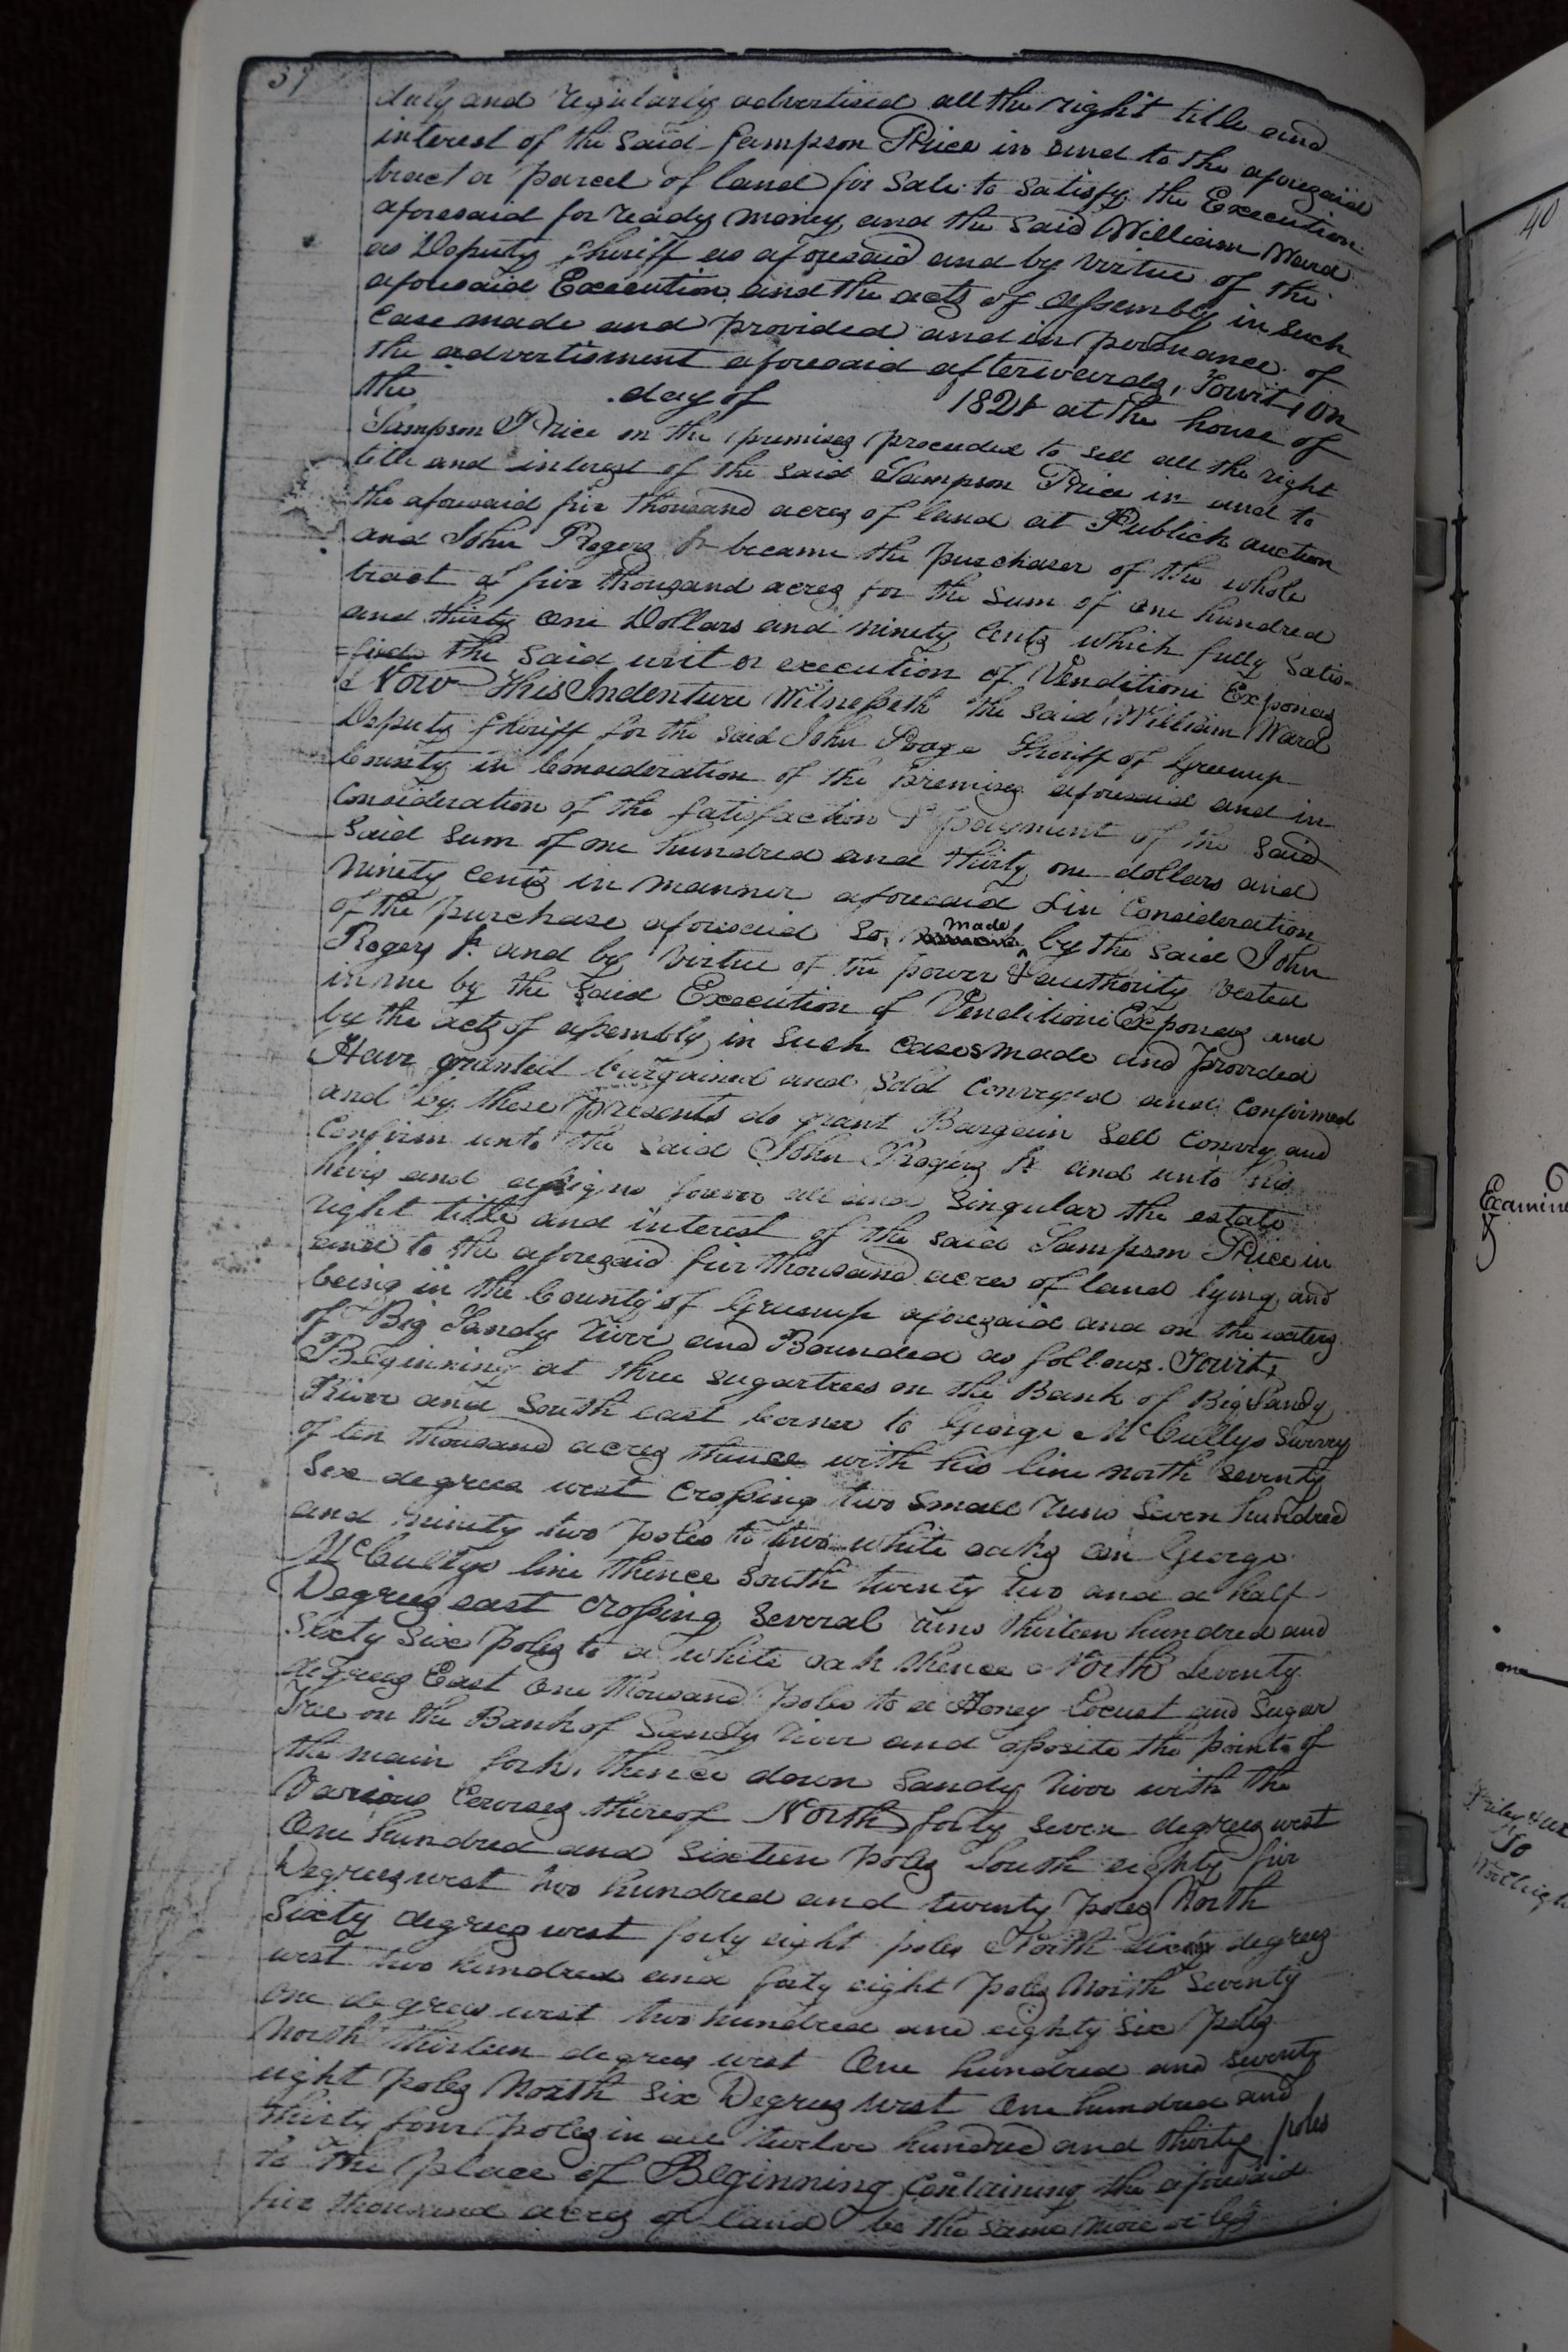 duly and regularly advertised all the right title and
interest of the said Sampson Price in and to the aforesaid
tract or parcel of land for Sale to satisfy the Execution
aforesaid for ready money and the said William Ward
as Deputy Sheriff as aforesaid and by virtue of the
aforesaid Execution and the acts of assembly in such
Case made and provided and in persuance of
the advertisment aforesaid afterwards, Towit, on
the day of 1821 at the house of
Sampson Price on the premises proceeded to sell all the right
title and interest of the said Sampson Price in and to
the aforesaid five thousand acres of land at Publick auction
and John Rogers Jr became the purchaser of the whole
tract of five thousand acres for the sum of one hundred
and thirty one Dollars and ninety Cents which fully Satis-
=fied the said writ or execution of Venditioni Exponas
Now This Indenture Witnesseth the said William Ward
Deputy Sheriff for the said John Poage Sheriff of Greenup
County in Consideration of the Premises aforesaid and in
Consideration of the satisfaction & payment of the said
said sum of one hundred and thirty one dollars and
ninety cents in manner aforesaid & in Consideration
of the purchase aforesaid so made by the said John
Rogers Jr. and by virtue of the power & authority vested
in me by the said Execution of Venditioni Exponas and
by the acts of assembly in such cases made and provided
Have granted bargained and sold conveyed and confirmed
and by these presents do grant Bargain sell convey and
Confirm unto the said John Rogers Jr and unto his
heirs and assigns forever all and singular the estate
right title and interest of the said Sampson Price in
and to the aforesaid five thousand acres of land lying and
being in the County of Greenup aforesaid and on the waters
of Big Sandy river and Bounded as follows. Towit,
Beginning at three sugartrees on the Bank of Big Sandy
River and South east Corner to George McCullys Survey
of ten thousand acres thence with his line north seventy
Six degrees west Crossing two small runs seven hundred
and ninety two poles to two white oaks on George
McCullys line thence South twenty two and a half
Degrees east crossing several runs thirteen hundred and
Sixty six poles to a white oak thence North Seventy
degrees East One thousand poles to a Honey Locust and Sugar
Tree on the Bank of Sandy river and oposite the point of
the main fork, thence down Sandy river with the
Various Courses thereof North forty seven degrees west
One hundred and sixteen poles South eighty five
Degrees west two hundred and twenty poles North
Sixty degrees west forty eight poles North sixty degrees
west two hundred and forty eight poles North Seventy
one degrees west two hundred and eighty six poles
North thirteen degrees west One hundred and seventy
eight poles North Six Degrees west One hundred and
thirty four poles in all twelve hundred and thirty poles
to the place of Beginning Containing the aforesaid
five thousand acres of land be the same more or less
40
one
To